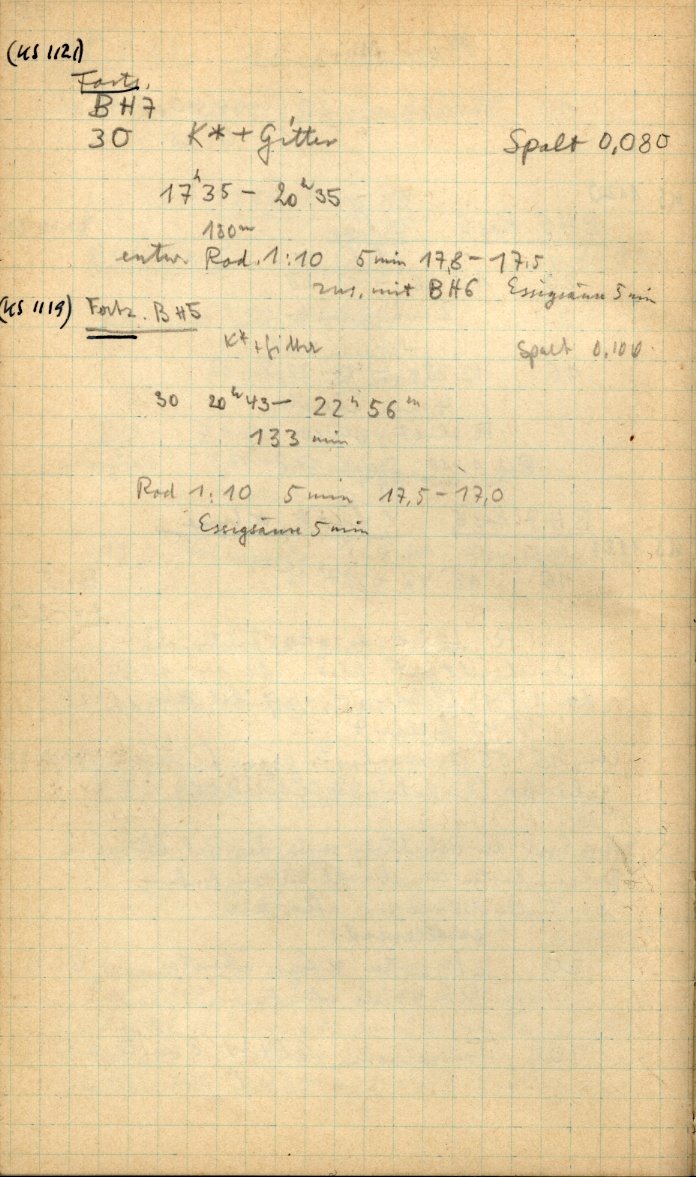 (KS 1121)
Forts.
BH7
30 K* + Gitter Spalt 0,080
17h35 – 20h35
180m
entw. Rod. 1:10 5 min 17,8 – 17,5
zus. mit BH6 Essigsäure 5 min
(KS 1119) Forts. BH5
K* + Gitter Spalt 0,100
30 20h43 – 22h56m
133 min
Rod 1:10 5 min 17,5 – 17,0
Essigsäure 5 min